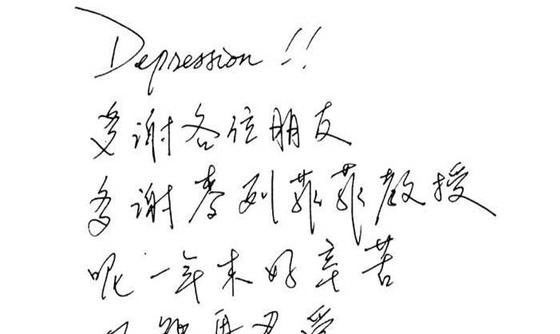 Depression !!
多謝各位朋友
多謝麥列菲菲教授
呢一年来好辛苦